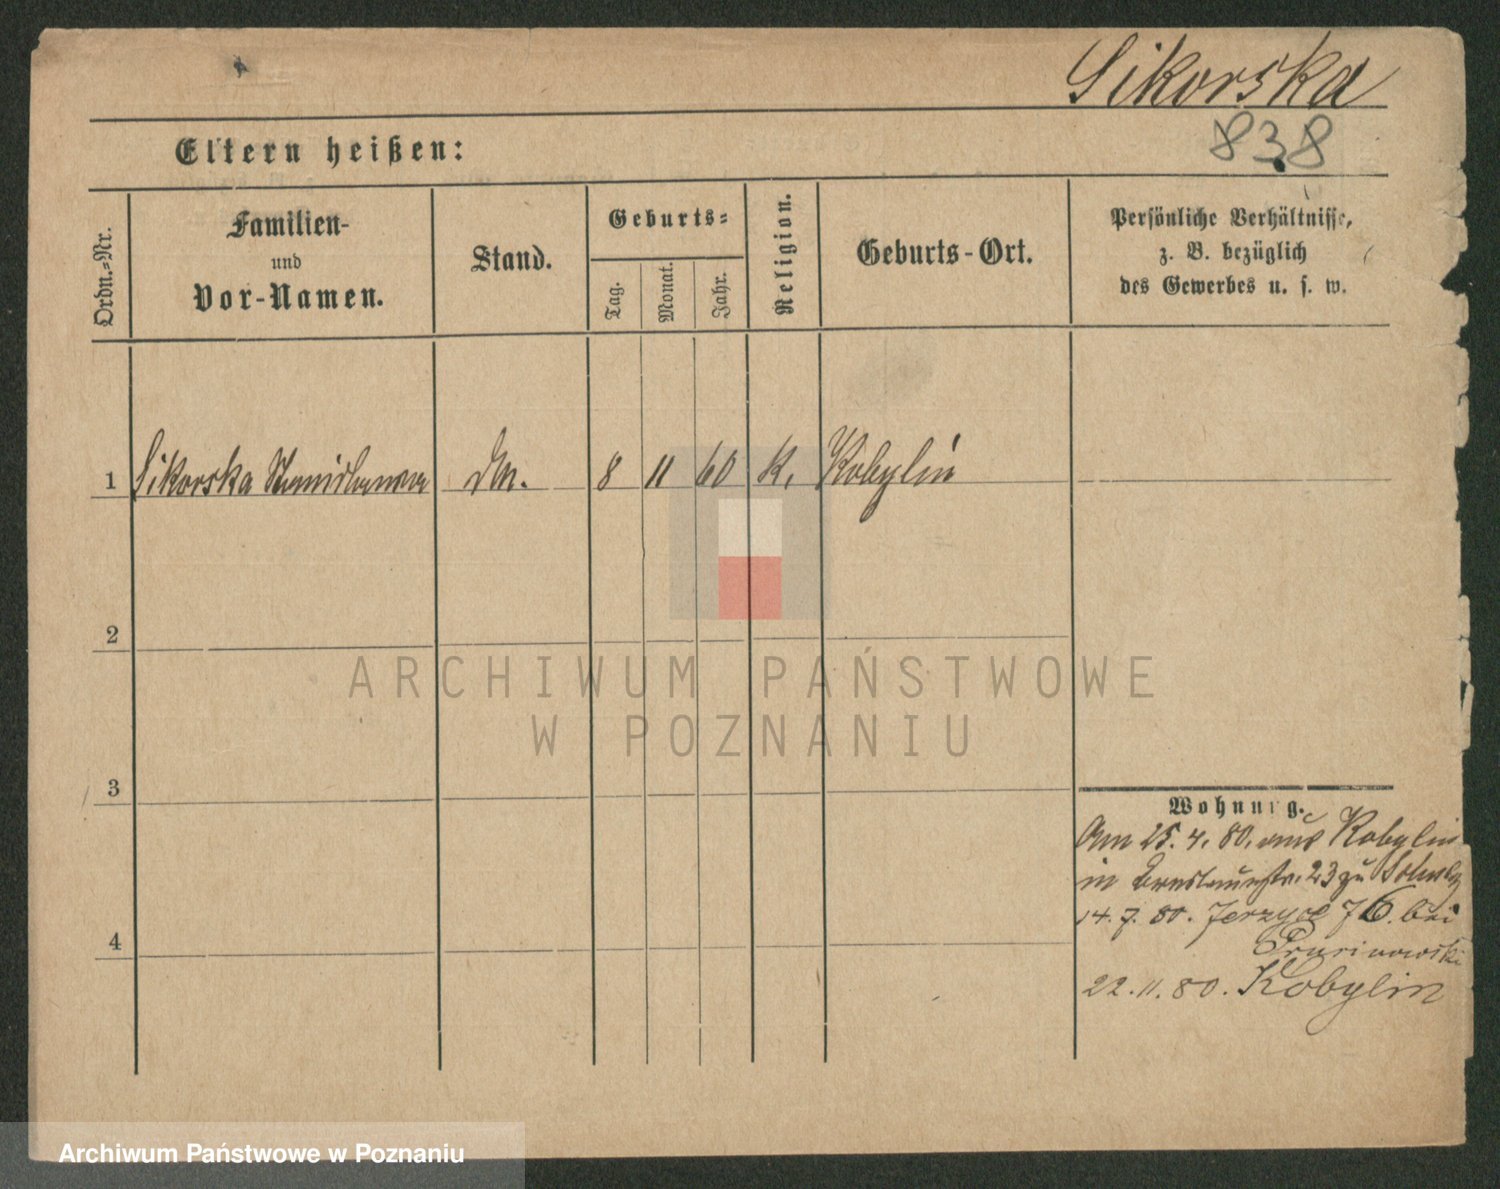 Sikorska
838
Eltern heißen:
Ordn.-Nr.
Familien-
und
Vor-Namen.
Stand.
Geburts-
Tag.
Monat.
Jahr.
Religion.
Geburts-Ort.
Persönliche Verhältnisse,
z. B. bezüglich
des Gewerbes u. s. w.
1 Sikorska Stanislawa 8 11 60 K. Kobylin
2
3
4
Wohnung.
Am 25. 4. 80. aus Kobylin
in Breslauerstr. 23 zu
14. 7. 80. Jerzyce 76. bei
22. 11. 80. Kobylin
ARCHIWUM PAŃSTWOWE
W POZNANIU
Archiwum Państwowe w Poznaniu